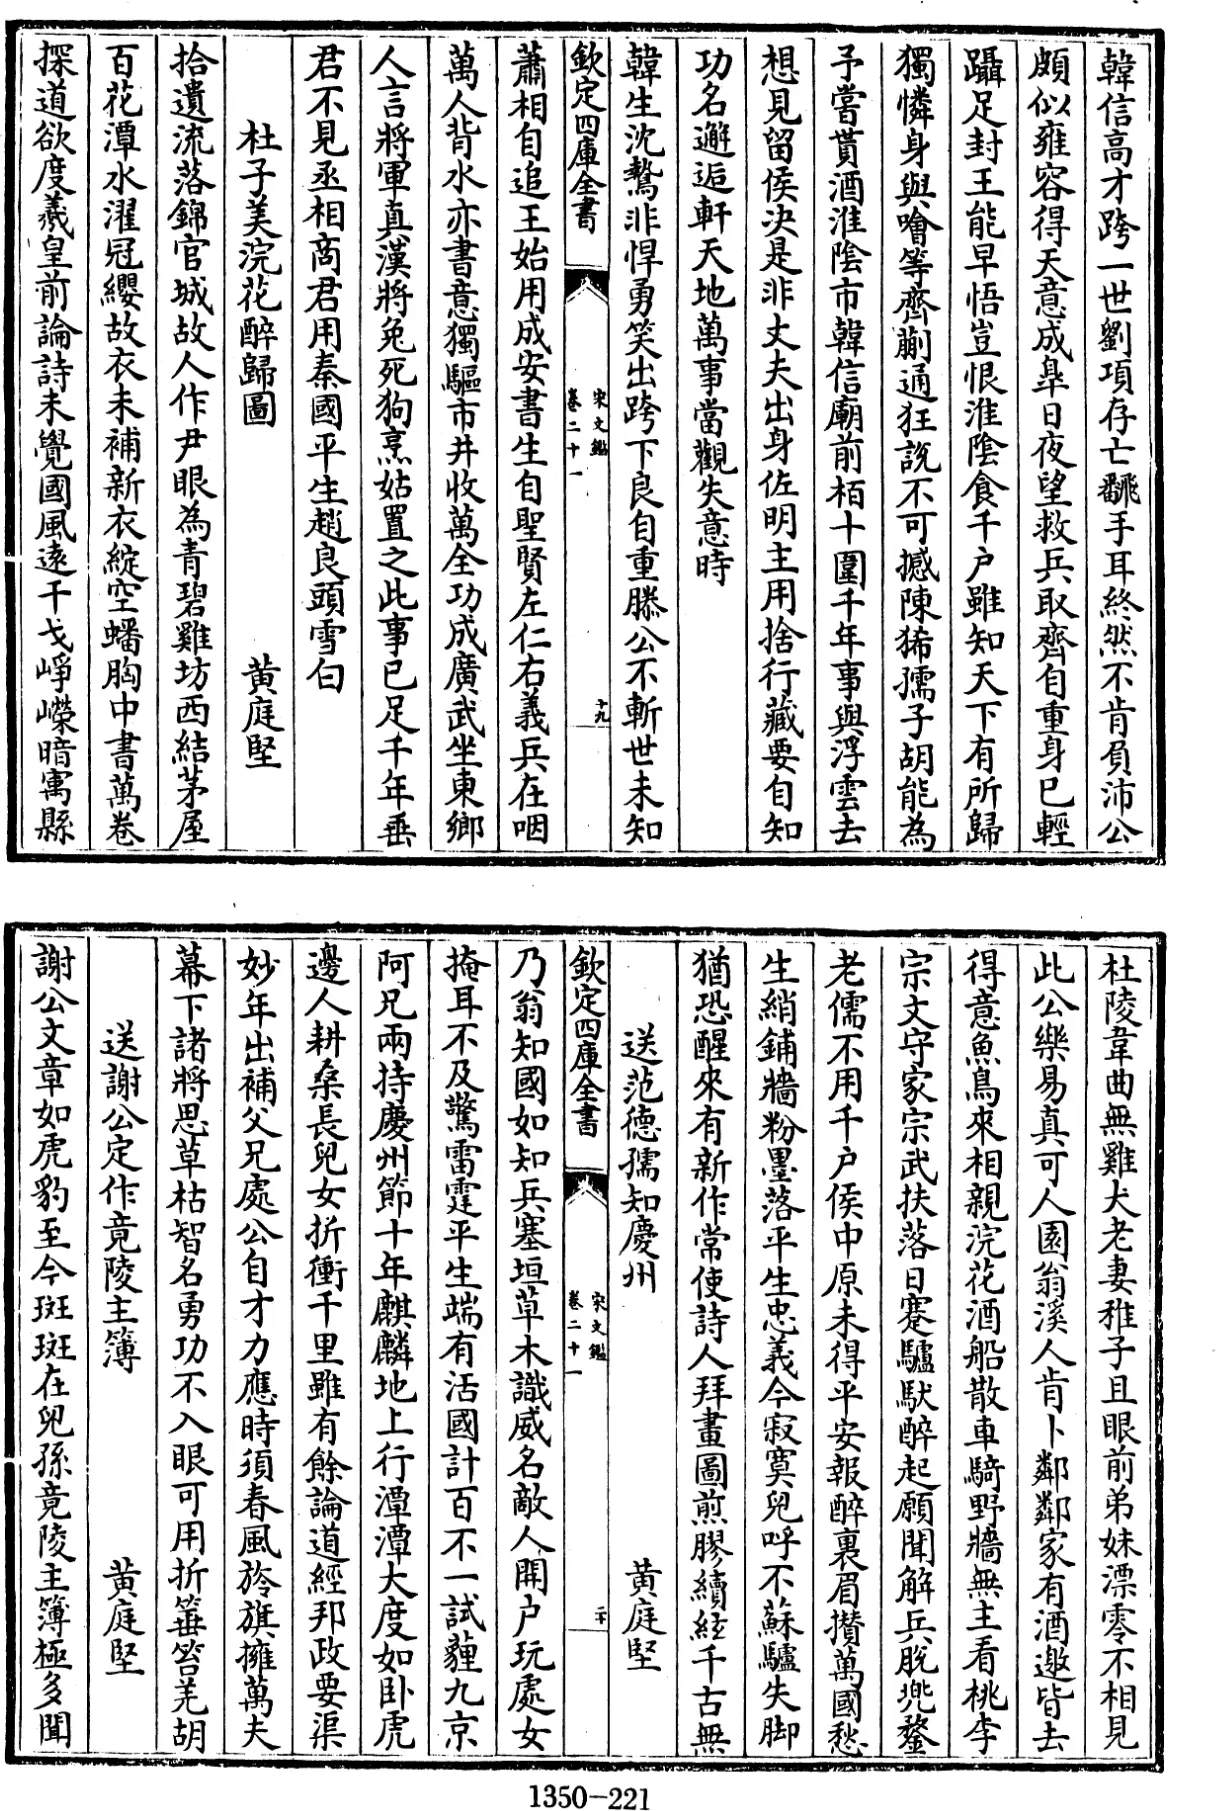 韓信高才跨一世劉項存亡翻手耳終然不肯負沛公
頗似雍容得天意成臯日夜望救兵取齊自重身已輕
躡足封王能早悟豈恨淮陰食千户雖知天下有所歸
獨憐身與噲等齊蒯通狂説不可撼陳豨孺子胡能為
予嘗貰酒淮陰市韓信廟前栢十圍千年事與浮雲去
想見留侯决是非丈夫出身佐明主用捨行藏要自知
功名邂逅軒天地萬事當觀失意時
韓生沈鷙非悍勇笑出跨下良自重滕公不斬世未知
欽定四庫全書
宋文鑑
卷二十一
十九
蕭相自追王始用成安書生自聖賢左仁右義兵在咽
萬人背水亦書意獨驅市井收萬全功成廣武坐東鄉
人言將軍真漢將兔死狗烹姑置之此事已足千年垂
君不見丞相商君用秦國平生趙良頭雪白
杜子美浣花醉歸圖
黄庭堅
拾遺流落錦官城故人作尹眼為青碧雞坊西結茅屋
百花潭水濯冠纓故衣未補新衣綻空蟠胸中書萬卷
探道欲度羲皇前論詩未覺國風逺干戈崢嶸暗寓縣
杜陵韋曲無雞犬老妻稚子且眼前弟妹漂零不相見
此公樂易真可人園翁溪人肯卜鄰鄰家有酒邀皆去
得意魚鳥來相親浣花酒船散車騎野牆無主看桃李
宗文守家宗武扶落日蹇驢馱醉起願聞解兵脱兠鍪
老儒不用千户侯中原未得平安報醉裏眉攅萬國愁
生綃鋪牆粉墨落平生忠義今寂寞兒呼不蘇驢失脚
猶恐醒來有新作常使詩人拜畫圖煎膠續絃千古無
送范德孺知慶州
黄庭堅
欽定四庫全書
宋文鑑
卷二十一
二十
乃翁知國如知兵塞垣草木識威名敵人開户玩處女
掩耳不及驚雷霆平生端有活國計百不一試薶九京
阿兄兩持慶州節十年麒麟地上行潭潭大度如卧虎
邊人耕桑長兒女折衝千里雖有餘論道經邦政要渠
妙年出補父兄處公自才力應時須春風旍旗擁萬夫
幕下諸將思草枯智名勇功不入眼可用折箠笞羌胡
送謝公定作竟陵主簿
黄庭堅
謝公文章如虎豹至今斑斑在兒孫竟陵主簿極多聞
1350-221